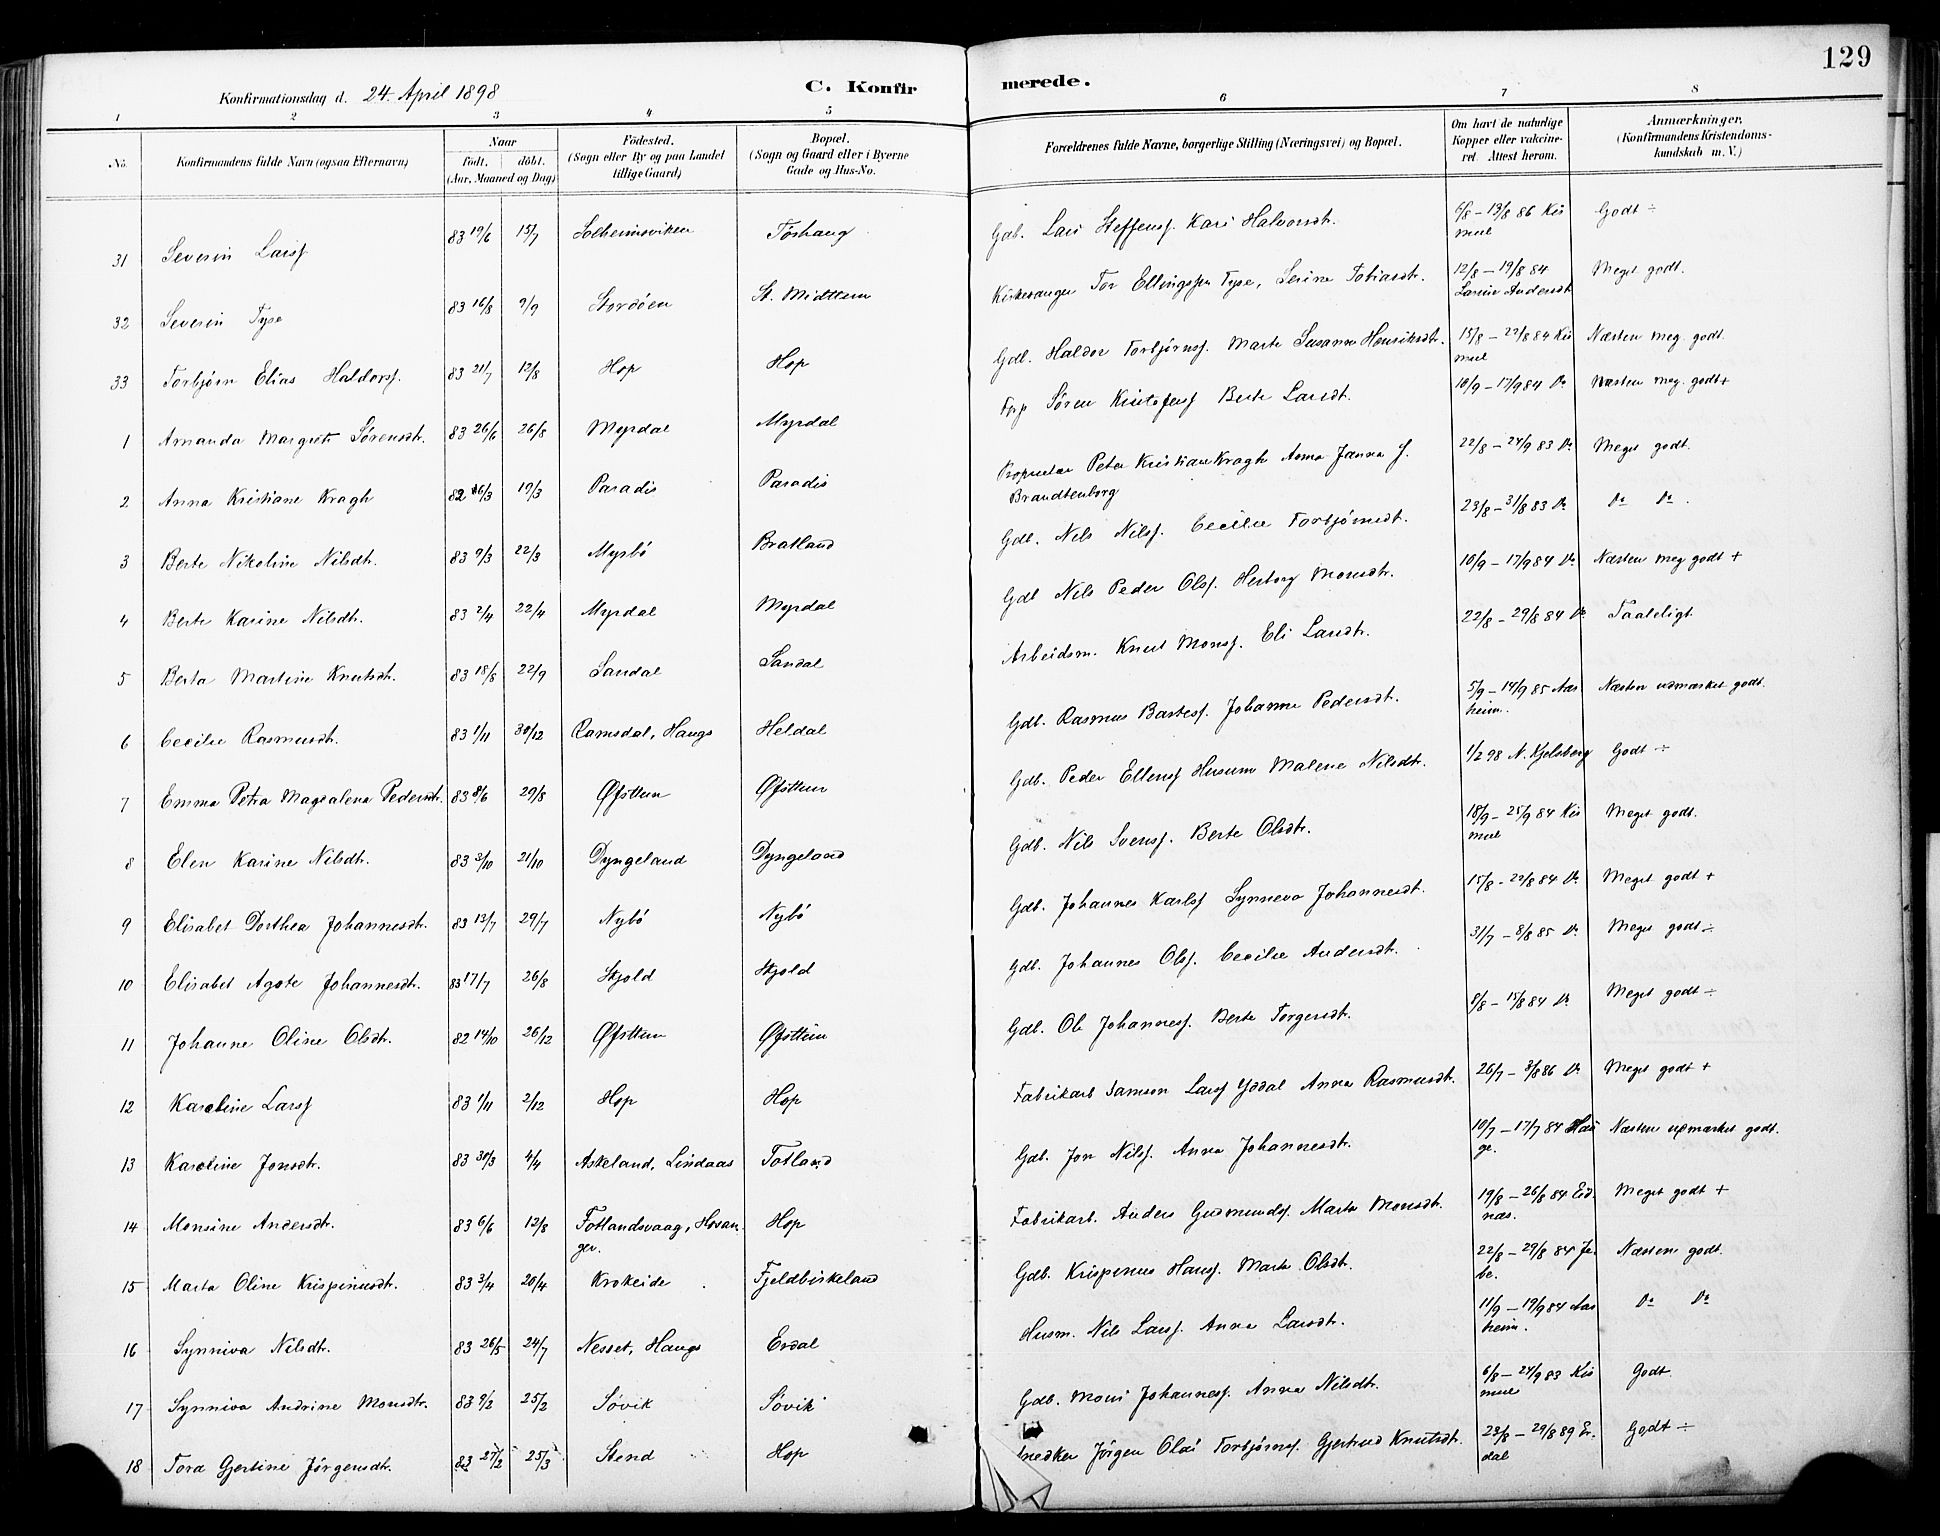 129
Konfirmationsdag d. 24. April 1898 C. Konfir merede.
1 2 3 4 5 6 7 8
No. Konfirmandens fulde Navn (ogsaa Efternavn) Naar født. døbt. (Aar, Maaned og Dag) Fødested. (Sogn eller By og paa Landet tillige Gaard) Bopæl. (Sogn og Gaard eller i Byerne Gade og Hus-No. Forældrenes fulde Navne, borgerlige Stilling (Næringsvei) og Bopæl. Om havt de naturlige Kopper eller vakcineret Attest herom. Anmærkninger. (Konfirmandens Kristendomskundskab m. V.)
31 Severin Larsf 83 19/6 15/7 Solheimsviken Tøshaug Gdb. Lars Steffensf. Kari Halvorsdt. 6/8 – 13/8 86 Kismul Godt ÷
32 Severin Tyse 83 16/8 9/9 Stordøen St. Midttun Kirkesanger Tor Ellingsen Tyse, Serine Tobiasdt. 12/8 – 19/8 84 Andersdt Meget godt.
33 Torbjørn Elias Haldorsf. 83 21/7 12/8 Hop Hop Gdb. Haldor Torbjørnsf. Marte Susanne Henriksdt. 15/8 – 22/8 84 Kismul Næsten meg. godt.
1 Amanda Margrete Sørensdt. 83 26/6 26/8 Myrdal Myrdal Søren Kristofensf Berte Larsdt. 10/9 – 17/9 84 Do Næsten meg. godt +
2 Anna Kristiane Kragh 82 16/3 19/3 Paradis Paradis Proprietær Peter Kristian Kragh Anna Janna J. Brandtenborg 22/8 – 24/9 83 Do Meget godt.
3 Berte Nikoline Nilsdt. 83 9/3 22/3 Myrbø Bratland Gdb. Nils Nilsf. Cecilie Torbjørnsdt. 23/8 – 31/8 83 Do Do Do.
4 Berte Karine Nilsdt. 83 2/4 22/4 Myrdal Myrdal Gdb Nils Peder Olsf. Herborg Monsdt. 10/9 – 17/9 84 Do Næsten meg godt +
5 Berta Martine Knutsdt. 83 18/8 22/9 Sandal Sandal Arbeidsm. Knut Monsf. Eli Larsdt. 22/8 – 29/8 84 Do Taaleligt
6 Cecilie Rasmusdt. 83 1/11 30/12 Ramsdal, Haugs Heldal Gdb. Rasmus Bartesf. Johanne Pedersdt. 5/9 – 14/9 85 Aasheim. Næsten udmærket godt.
7 Emma Petra Magdalena Pedersdt. 83 8/6 29/8 Øfsttun Øfsttun Gdb. Peder Ellensf Husum Malene Nilsdt. 1/2 98 N. Kjelsberg Godt ÷
8 Elen Karine Nilsdt. 83 3/10 21/10 Dyngeland Dyngeland Gdb. Nils Svensf. Berte Olsdt. 18/9 – 25/9 84 Kismul Meget godt.
9 Elisabet Dorthea Johannesdt. 83 13/7 29/7 Nybø Nybø Gdb. Johannes Karlsf Synneva Johannesdt. 15/8 – 22/8 84 Do Meget godt +
10 Elisabet Agate Johannesdt. 83 17/7 26/8 Skjold Skjold Gdb. Johannes Olsf. Cecilie Andersdt. 31/7 – 8/8 85 Do Meget godt ÷
11 Johanne Oline Olsdt. 82 14/10 26/12 Øfsttun Øfsttun Gdb. Ole Johannesf. Berte Torgersdt. 8/8 – 15/8 84 Do Meget godt ÷
12 Karoline Larsf 83 1/11 2/12 Hop Hop Fabrikarb Samson Larsf Yddal Anna Rasmusdt. 26/7 – 3/8 86 Do Meget godt +
13 Karoline Jonsdt. 83 30/3 4/4 Askeland, Lindaas Totland Gdb. Jon Nilsf. Anna Johannesdt. 10/7 – 17/7 84 Hauge. Næsten udmærket godt.
14 Monsine Andersdt. 83 6/6 12/8 Fotlandsvaag, Hosanger. Hop Fabrikarb. Anders Gudmundsf. Marta Monsdt. 19/8 – 26/8 84 Eidnæs. Meget godt +
15 Marta Oline Krispinusdt. 83 3/4 20/4 Krokeide Fjeldbirkeland Gdb. Krispinus Hansf. Marte Olsdt. 22/8 – 29/8 84 Næsten godt.
16 Synniva Nilsdt. 83 26/5 24/7 Nesset, Haugs Erdal Husm. Nils Larsf. Anna Larsdt. 11/9 – 19/9 84 Aasheim. Do Do
17 Synniva Andrine Monsdt. 83 9/2 25/2 Søvik Søvik Gdb. Mons Johannesf. Anna Nilsdt. 6/8 – 24/9 83 Kismul Godt.
18 Tora Gjertine Jørgensdt. 83 27/2 25/3 Stend Hop Snedker Jörgen Olai Torbjørnsf. Gjertrud Knutsdt. 23/8 – 29/8 89 Erdal Godt ÷